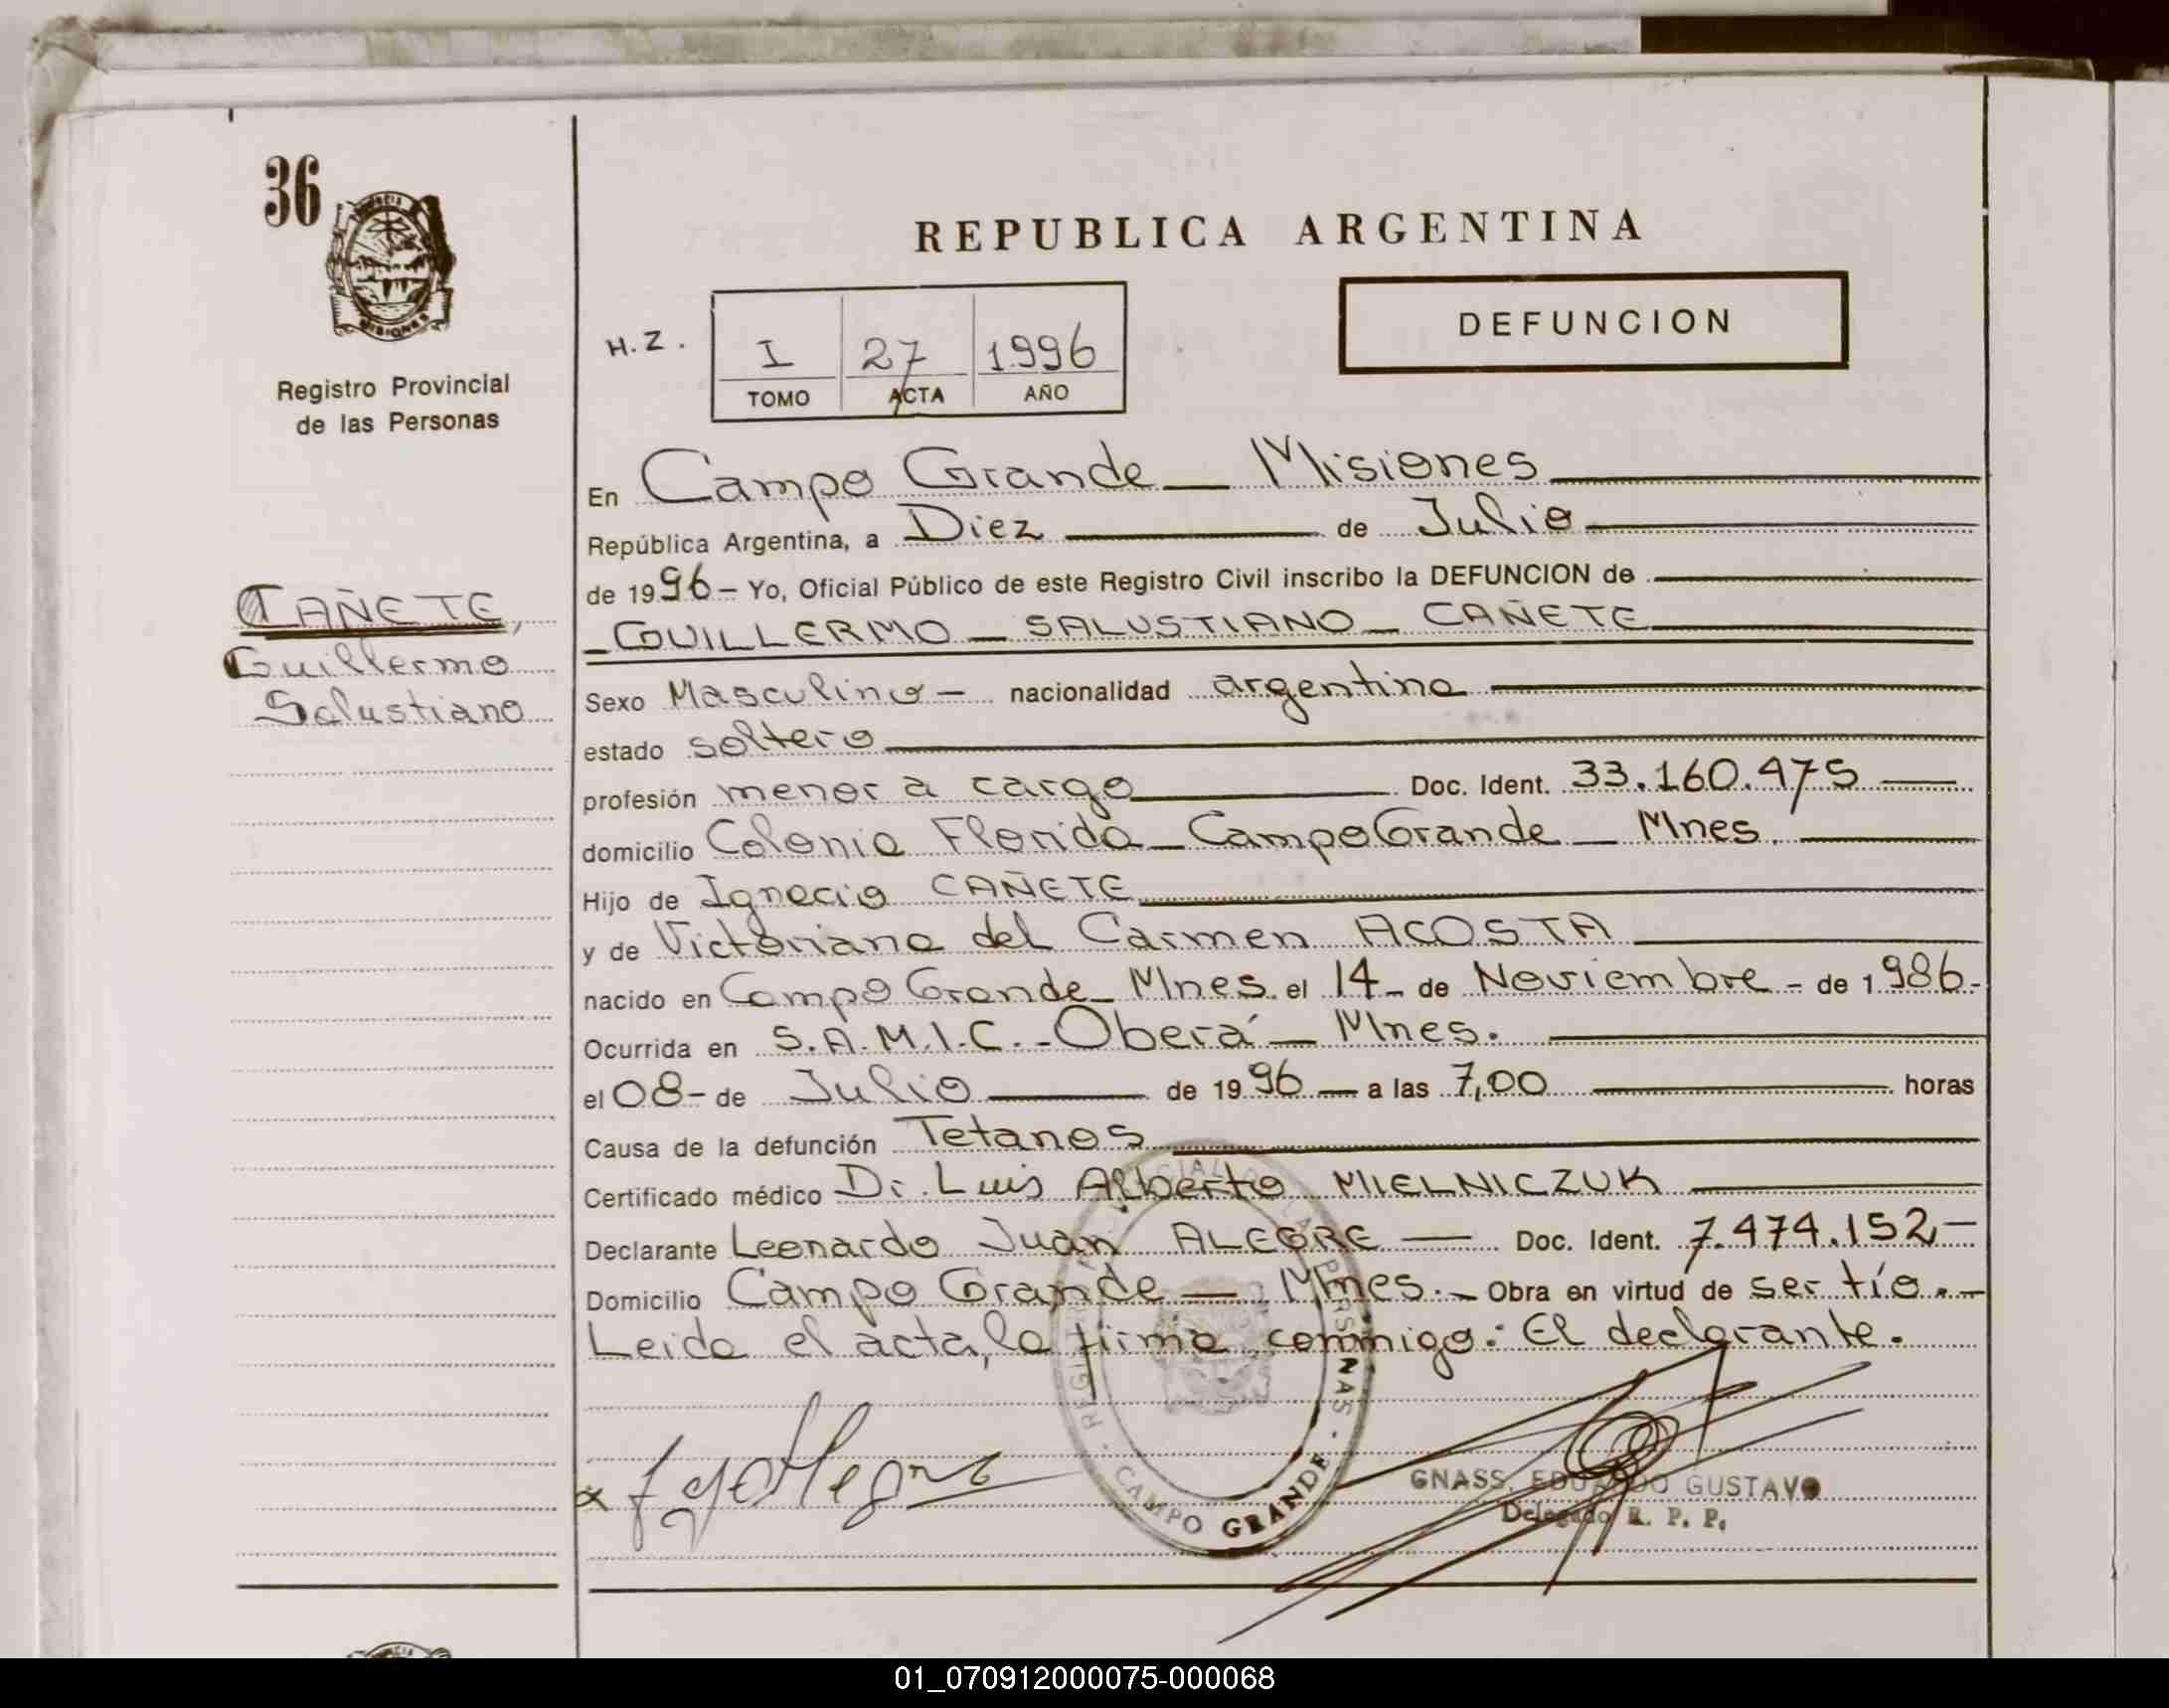 36
MISIONES
Registro Provincial
de las Personas
CAÑETE,
Guillermo
Salustiano
REPUBLICA ARGENTINA
DEFUNCION
H.Z.
I 27 1996
TOMO ACTA AÑO
En Campo Grande — Misiones
República Argentina, a Diez de Julio
de 1996 - Yo, Oficial Público de este Registro Civil inscribo la DEFUNCION de
- GUILLERMO - SALUSTIANO - CAÑETE
Sexo Masculino - nacionalidad argentina
estado soltero
profesión menor a cargo Doc. Ident. 33.160.475
domicilio Colonia Florida - Campo Grande - Mnes.
Hijo de Ignacio CAÑETE
y de Victoriana del Carmen ACOSTA
nacido en Campo Grande - Mnes. el 14 - de Noviembre - de 1986 -
Ocurrida en S.A.M.I.C. - Oberá - Mnes.
el 08 - de Julio de 1996 - a las 7,00 horas
Causa de la defunción Tetanos
Certificado médico Dr. Luis Alberto MIELNICZUK
Declarante Leonardo Juan ALEGRE — Doc. Ident. 7.474.152 -
Domicilio Campo Grande — Mnes. - Obra en virtud de ser tío. -
Leida el acta, la firma conmigo: El declarante.
CAMPO GRANDE
GNASS, EDUARDO GUSTAVO
Delegado R. P. P.
01_070912000075-000068